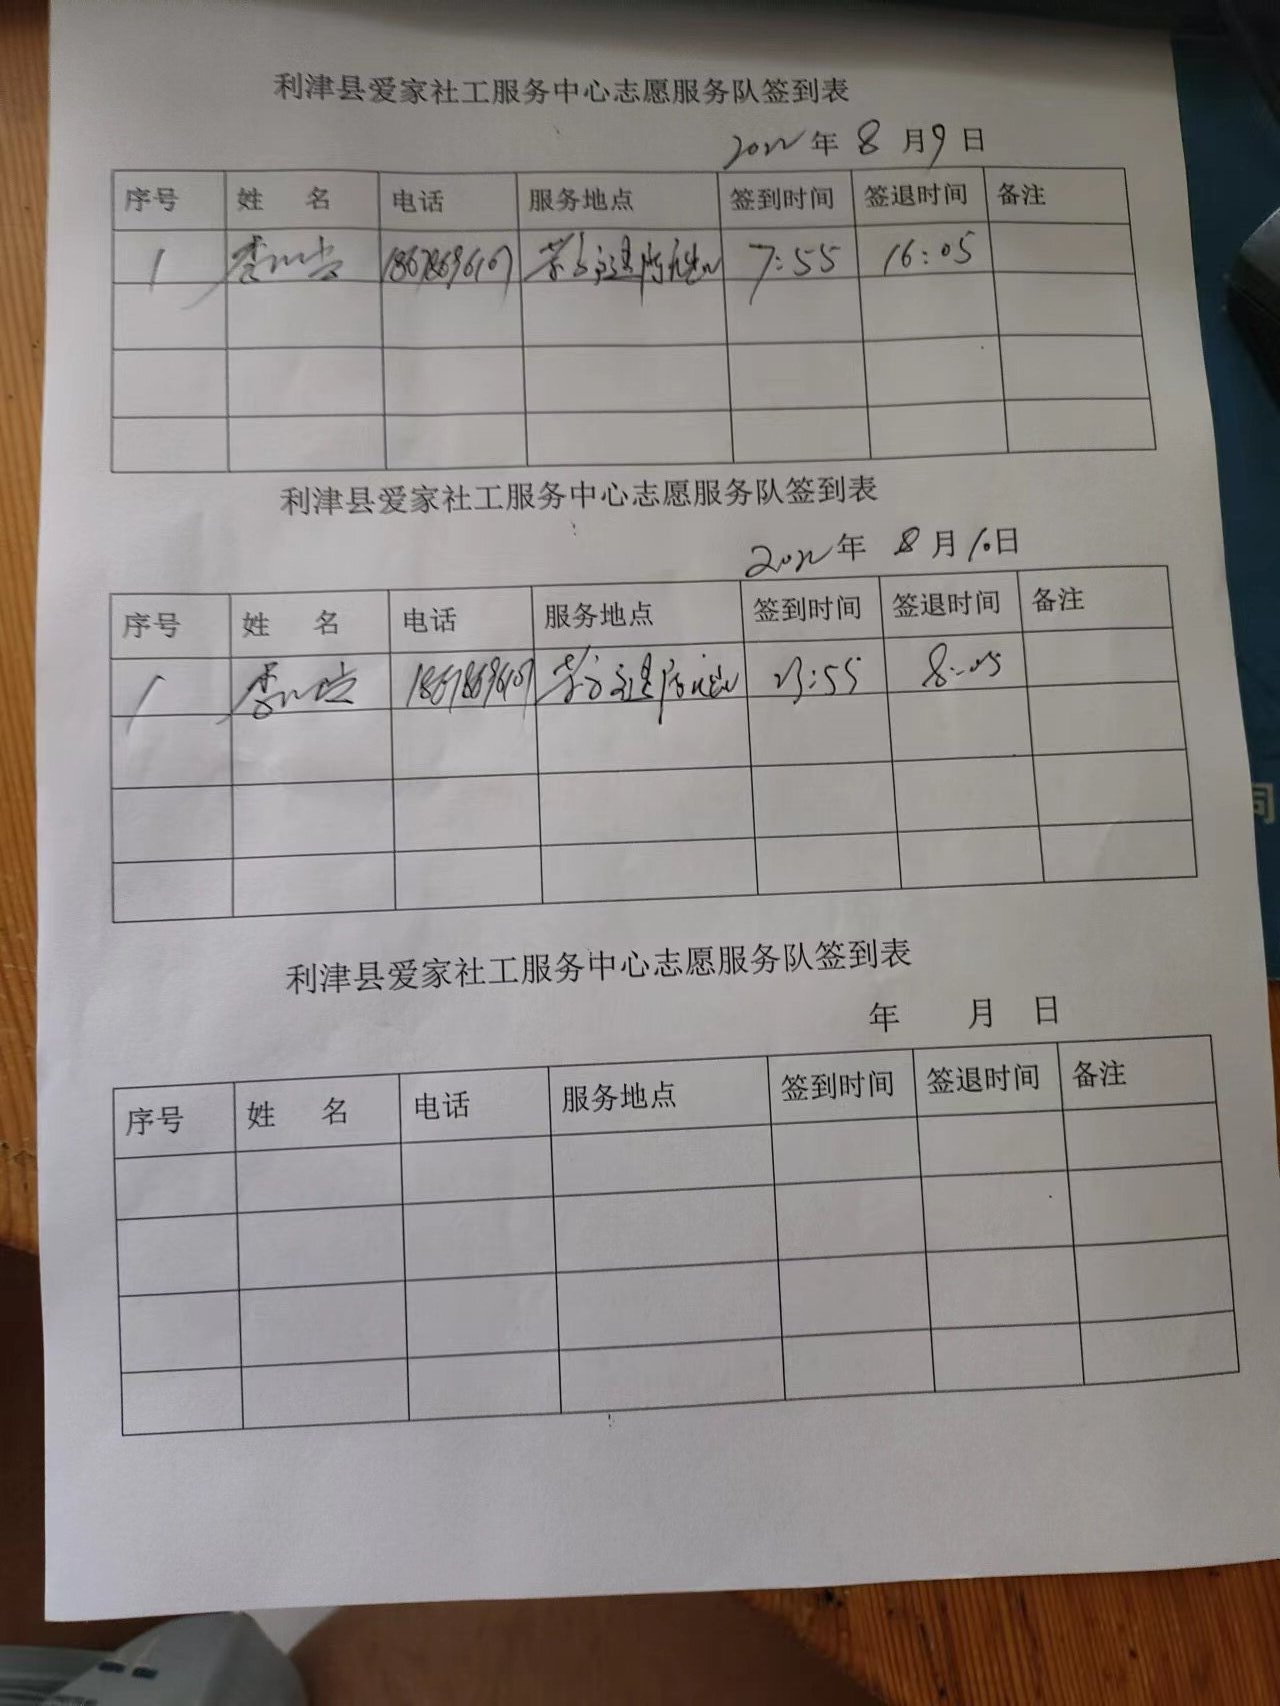 利津县爱家社工服务中心志愿服务队签到表
2022年 8 月 9 日
序号 姓 名 电话 服务地点 签到时间 签退时间 备注
1 李 7:55 16:05
利津县爱家社工服务中心志愿服务队签到表
2022年 8 月 10 日
序号 姓 名 电话 服务地点 签到时间 签退时间 备注
1 李 23:55 8:05
利津县爱家社工服务中心志愿服务队签到表
年 月 日
序号 姓 名 电话 服务地点 签到时间 签退时间 备注
同